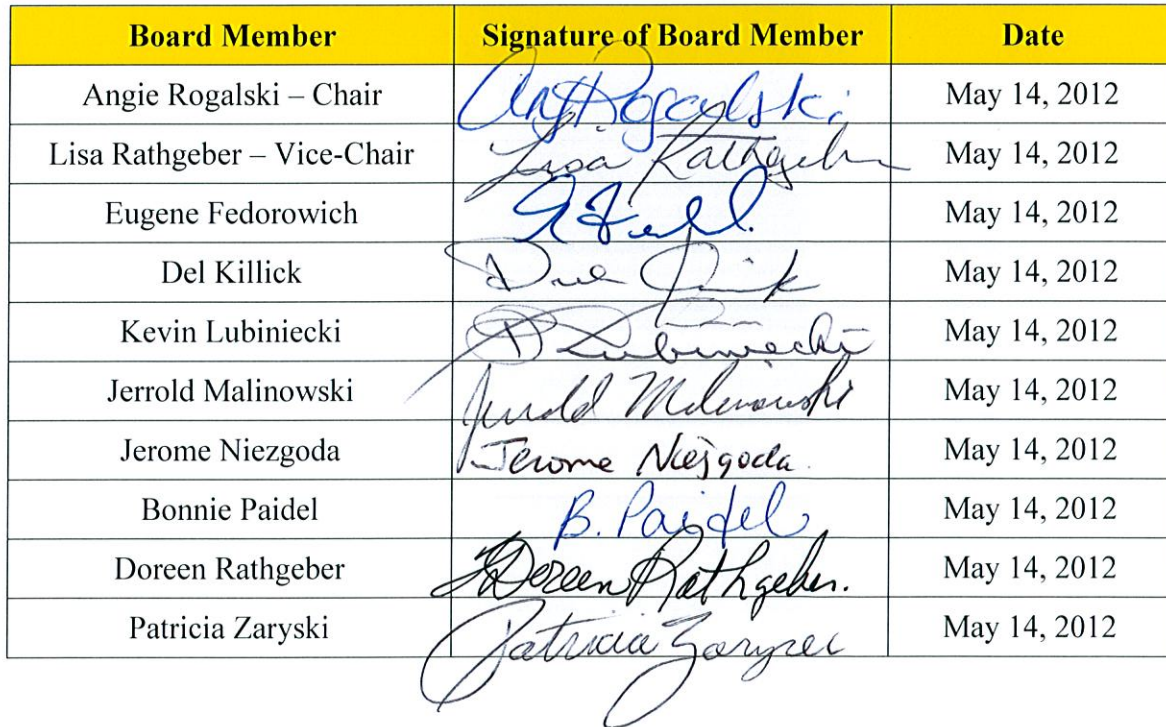 Board Member Signature of Board Member Date
Angie Rogalski – Chair Rogalski May 14, 2012
Lisa Rathgeber – Vice-Chair Lisa Rathgeber May 14, 2012
Eugene Fedorowich May 14, 2012
Del Killick May 14, 2012
Kevin Lubiniecki Lubiniecki May 14, 2012
Jerrold Malinowski Jerrold Malinowski May 14, 2012
Jerome Niezgoda Jerome Niezgoda May 14, 2012
Bonnie Paidel B. Paidel May 14, 2012
Doreen Rathgeber Doreen Rathgeber. May 14, 2012
Patricia Zaryski Patricia May 14, 2012